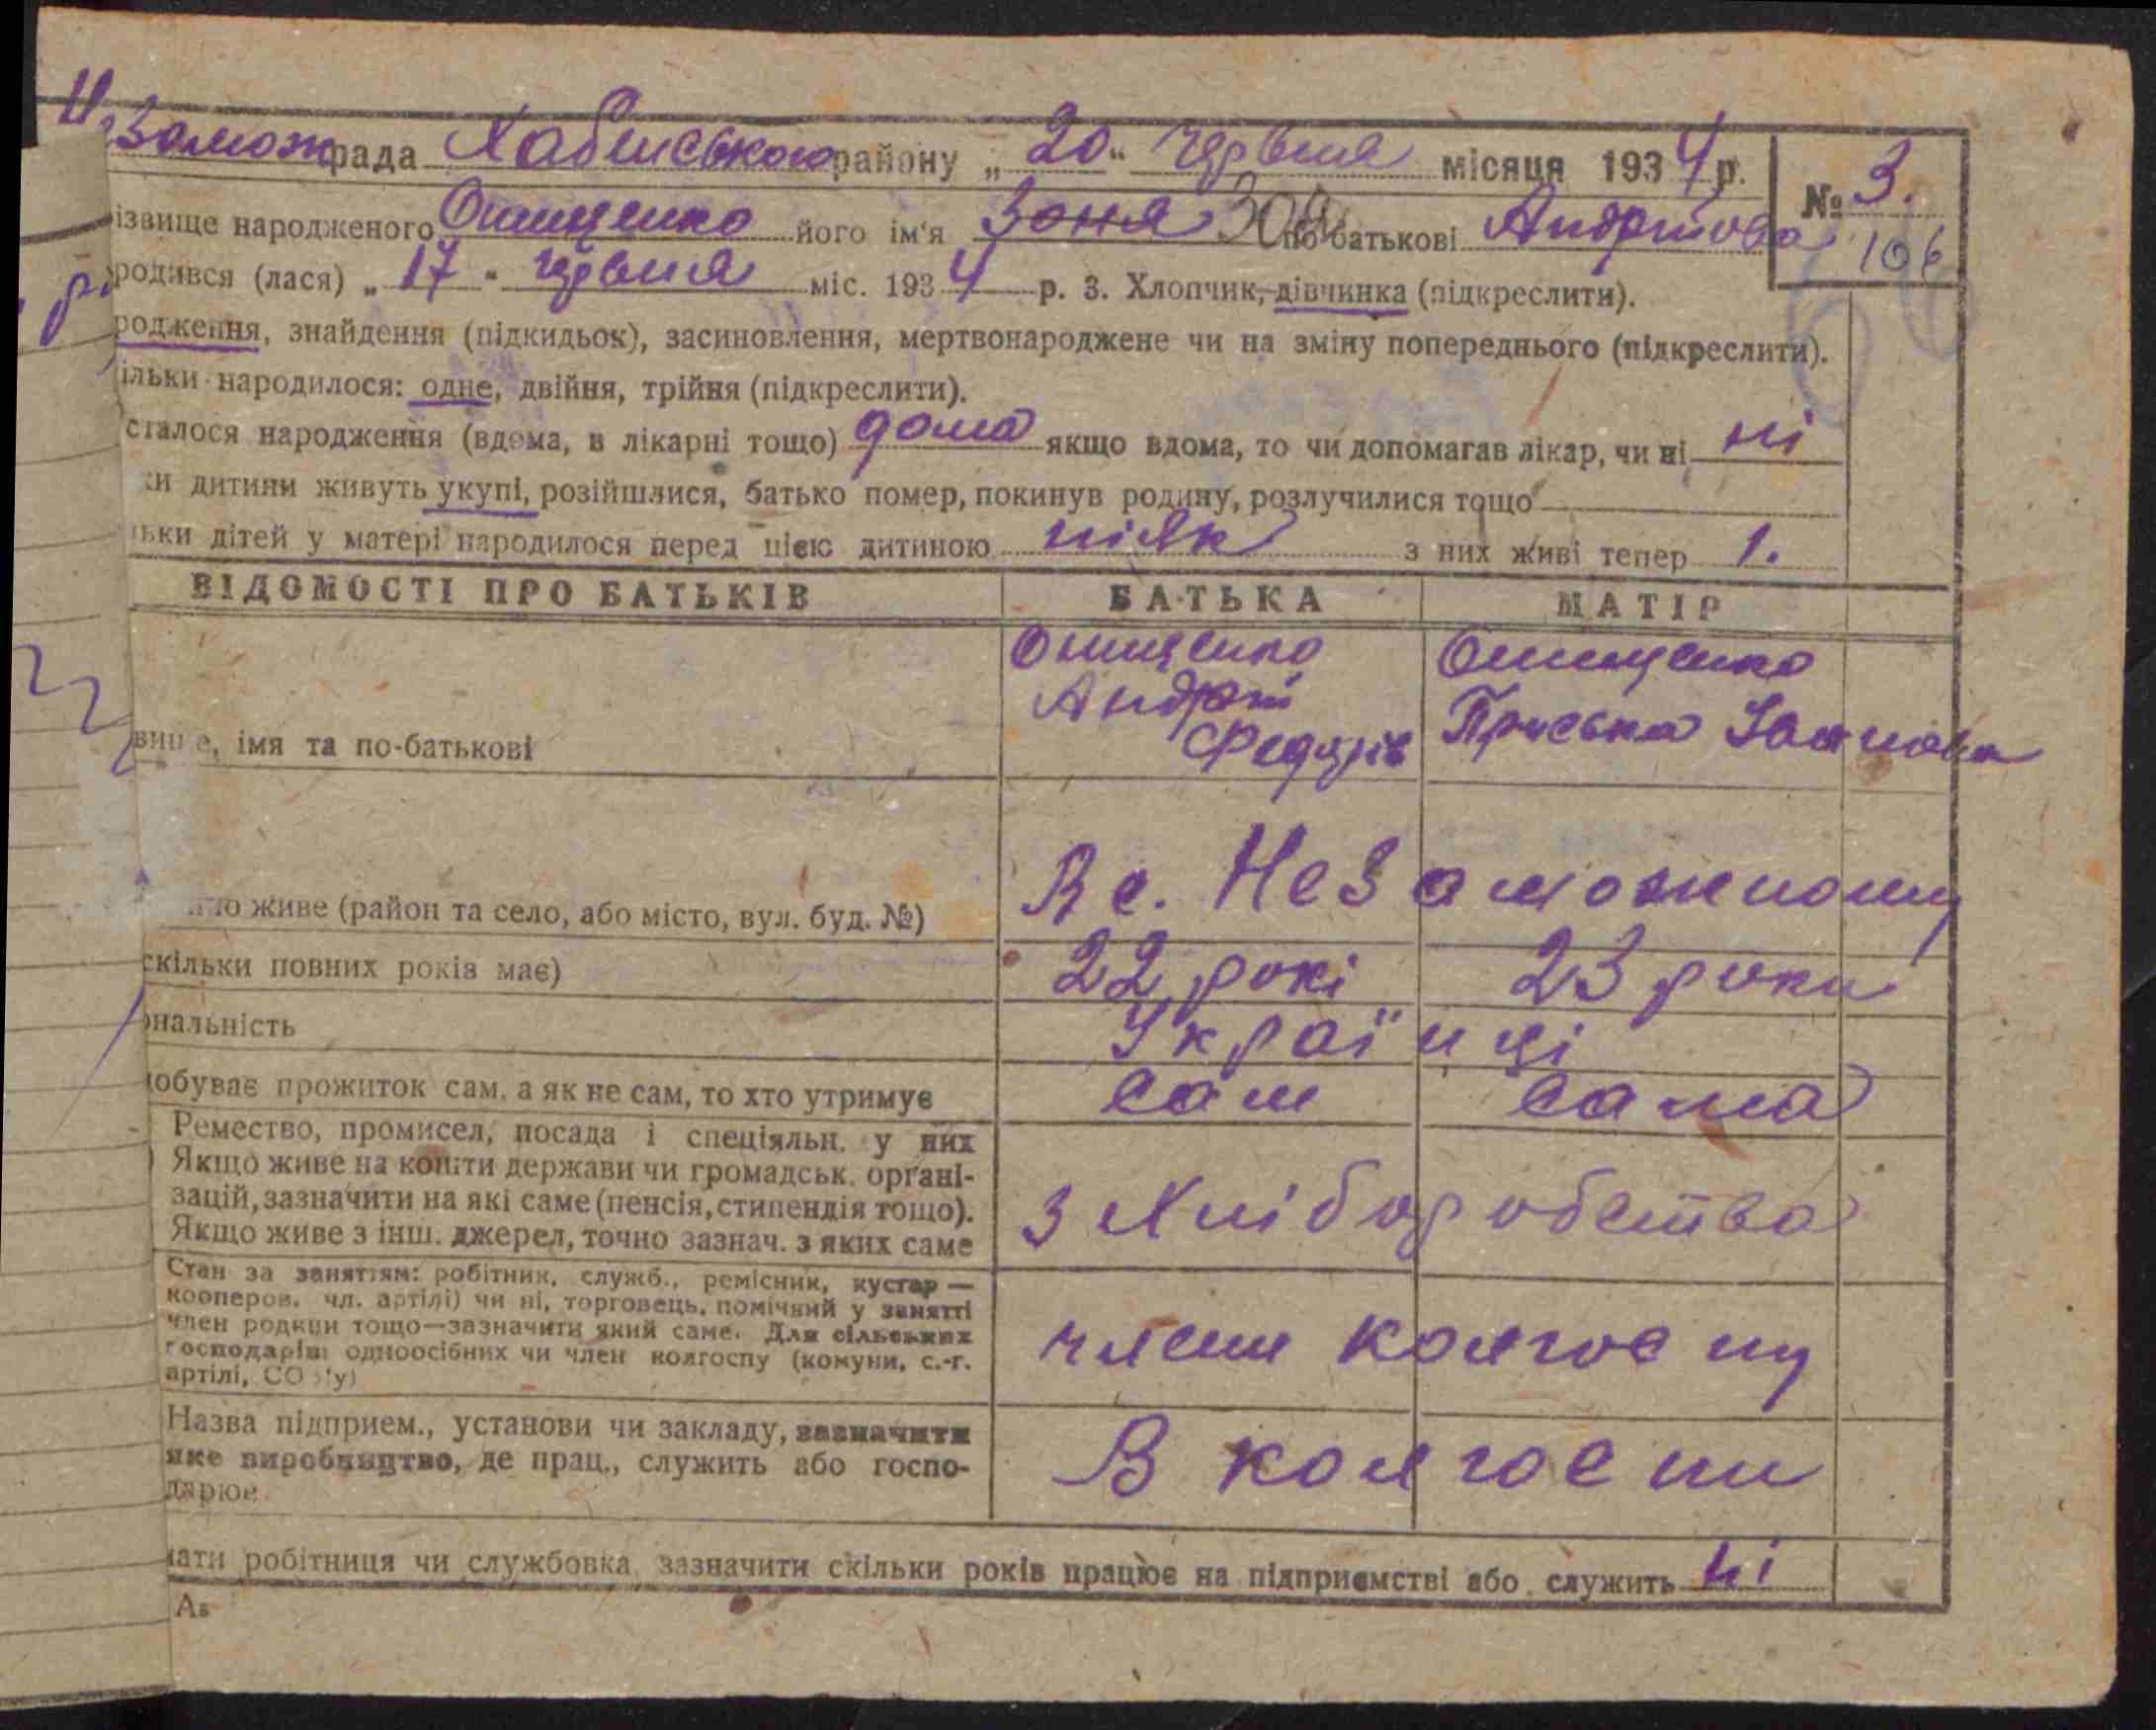 Незамож рада Хабенського району „ 20 “ червня місяця 1934 р. № 3.
ізвище народженого Онищенко його ім‘я Зоня Зоя по батькові Андріїова 106
родився (лася) „ 17 “ червня міс. 1934 р. 3. Хлопчик, дівчинка (підкреслити).
родження, знайдення (підкидьок), засиновлення, мертвонароджене чи на зміну попереднього (підкреслити).
ільки народилося: одне, двійня, трійня (підкреслити).
сталося народження (вдома, в лікарні тощо) дома якщо вдома, то чи допомагав лікар, чи ні ні
ки дитини живуть укупі, розійшлися, батько помер, покинув родину, розлучилися тощо
льки дітей у матері народилося перед цією дитиною ніяк з них живі тепер 1.
ВІДОМОСТІ ПРО БАТЬКІВ БАТЬКА МАТІР
Онищенко Онищенко
Андрій
вище, імя та по-батькові Федорів Приська Іванова
но живе (район та село, або місто, вул. буд. №) В с. Незаможному
скільки повних років має) 22 рокі 23 роки
ональність Українці
обуває прожиток сам, а як не сам, то хто утримує сам сама
Ремество, промисел, посада і спеціяльн. у них
Якщо живе на кошти держави чи громадськ. органі-
зацій, зазначити на які саме (пенсія, стипендія тощо). з Хліборобства
Якщо живе з інш. джерел, точно зазнач. з яких саме
Стан за заняттям: робітник, служб., ремісник, кустар —
кооперов. чл. артілі) чи ні, торговець, помічний у занятті
член родини тощо—зазначити який саме. Для сільських
господарів: одноосібних чи член колгоспу (комуни, с.-г. члени колгоспу
артілі, СОЗ'у)
Назва підприєм., установи чи закладу, зазначити
яке виробництво, де прац., служить або госпо- В колгоспи
дарює.
мати робітниця чи службовка, зазначити скільки років працює на підприємстві або служить ні
Ав